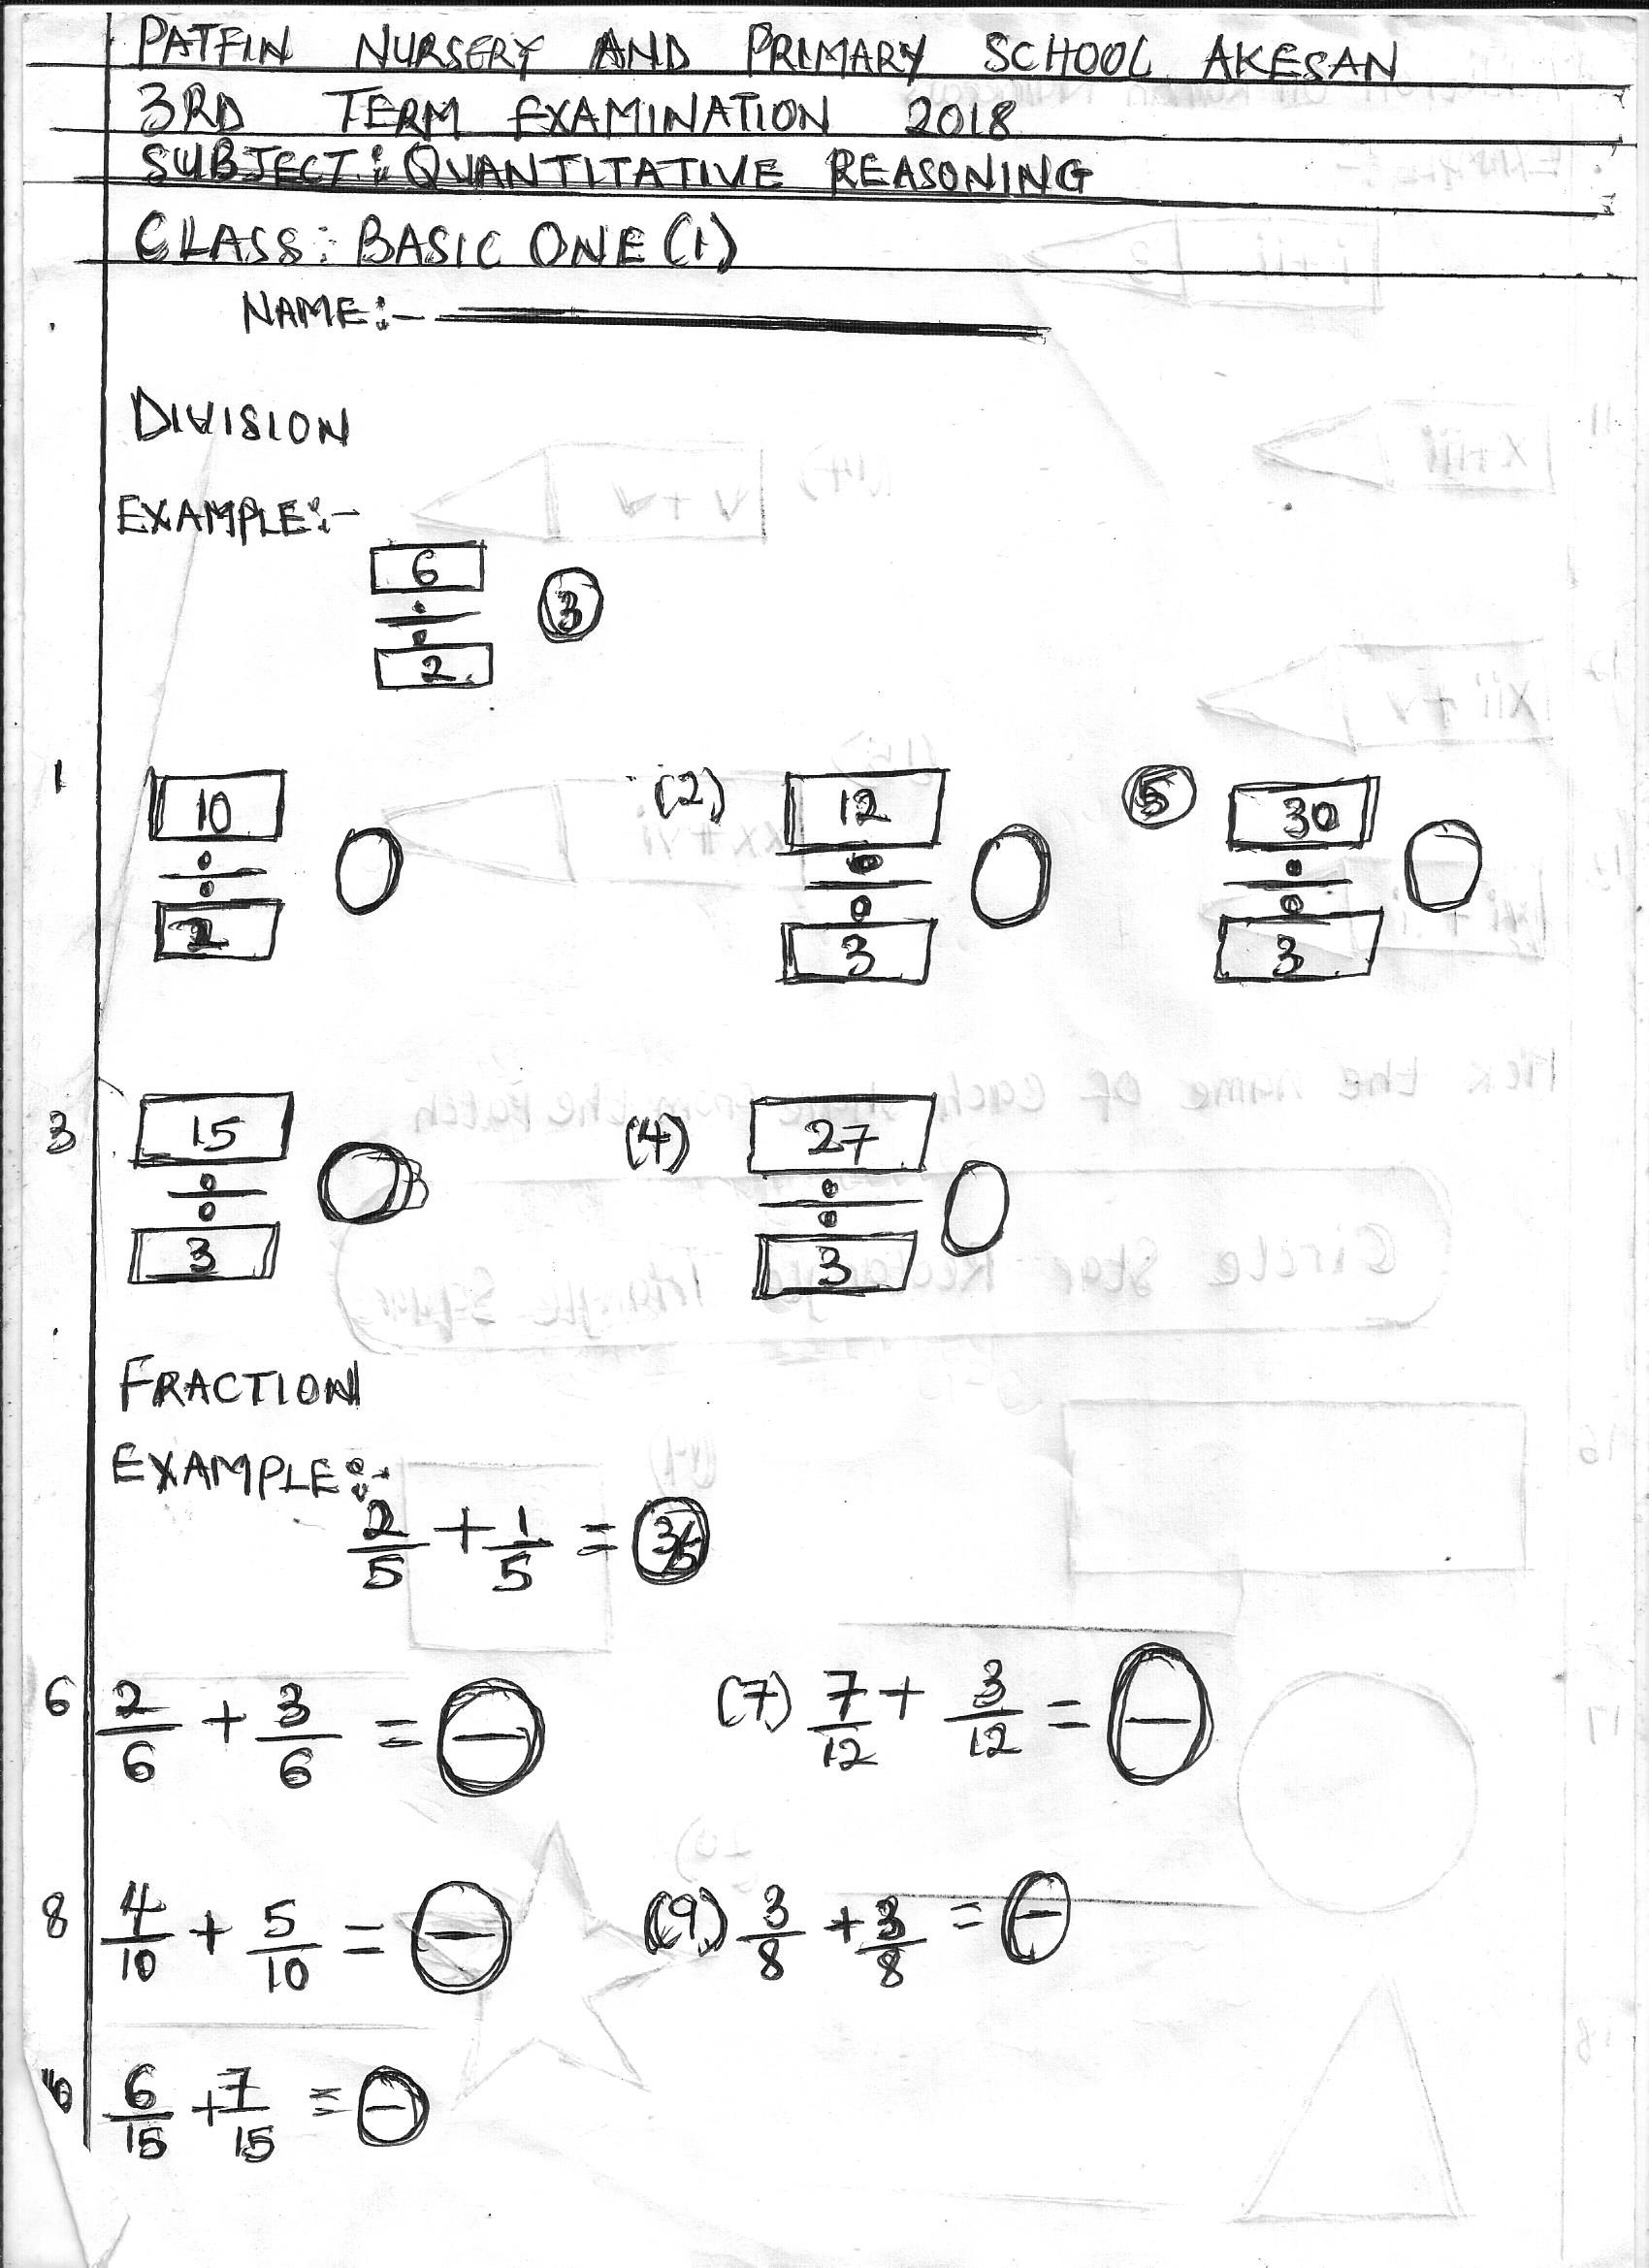 PATFIN NURSERY AND PRIMARY SCHOOL AKESAN
3RD TERM EXAMINATION 2018
SUBJECT: QUANTITATIVE REASONING
CLASS: BASIC ONE (1)
NAME:-
DIVISION
EXAMPLE:-
6 ÷ 2 3
1 10 ÷ 2
(2) 12 ÷ 3
5 30 ÷ 3
3 15 ÷ 3
(4) 27 ÷ 3
FRACTION
EXAMPLE:-
2/5 + 1/5 = 3/5
6 2/6 + 3/6 = —
(7) 7/12 + 3/12 = —
8 4/10 + 5/10 = —
(9) 3/8 + 3/8 = —
10 6/15 + 7/15 = —